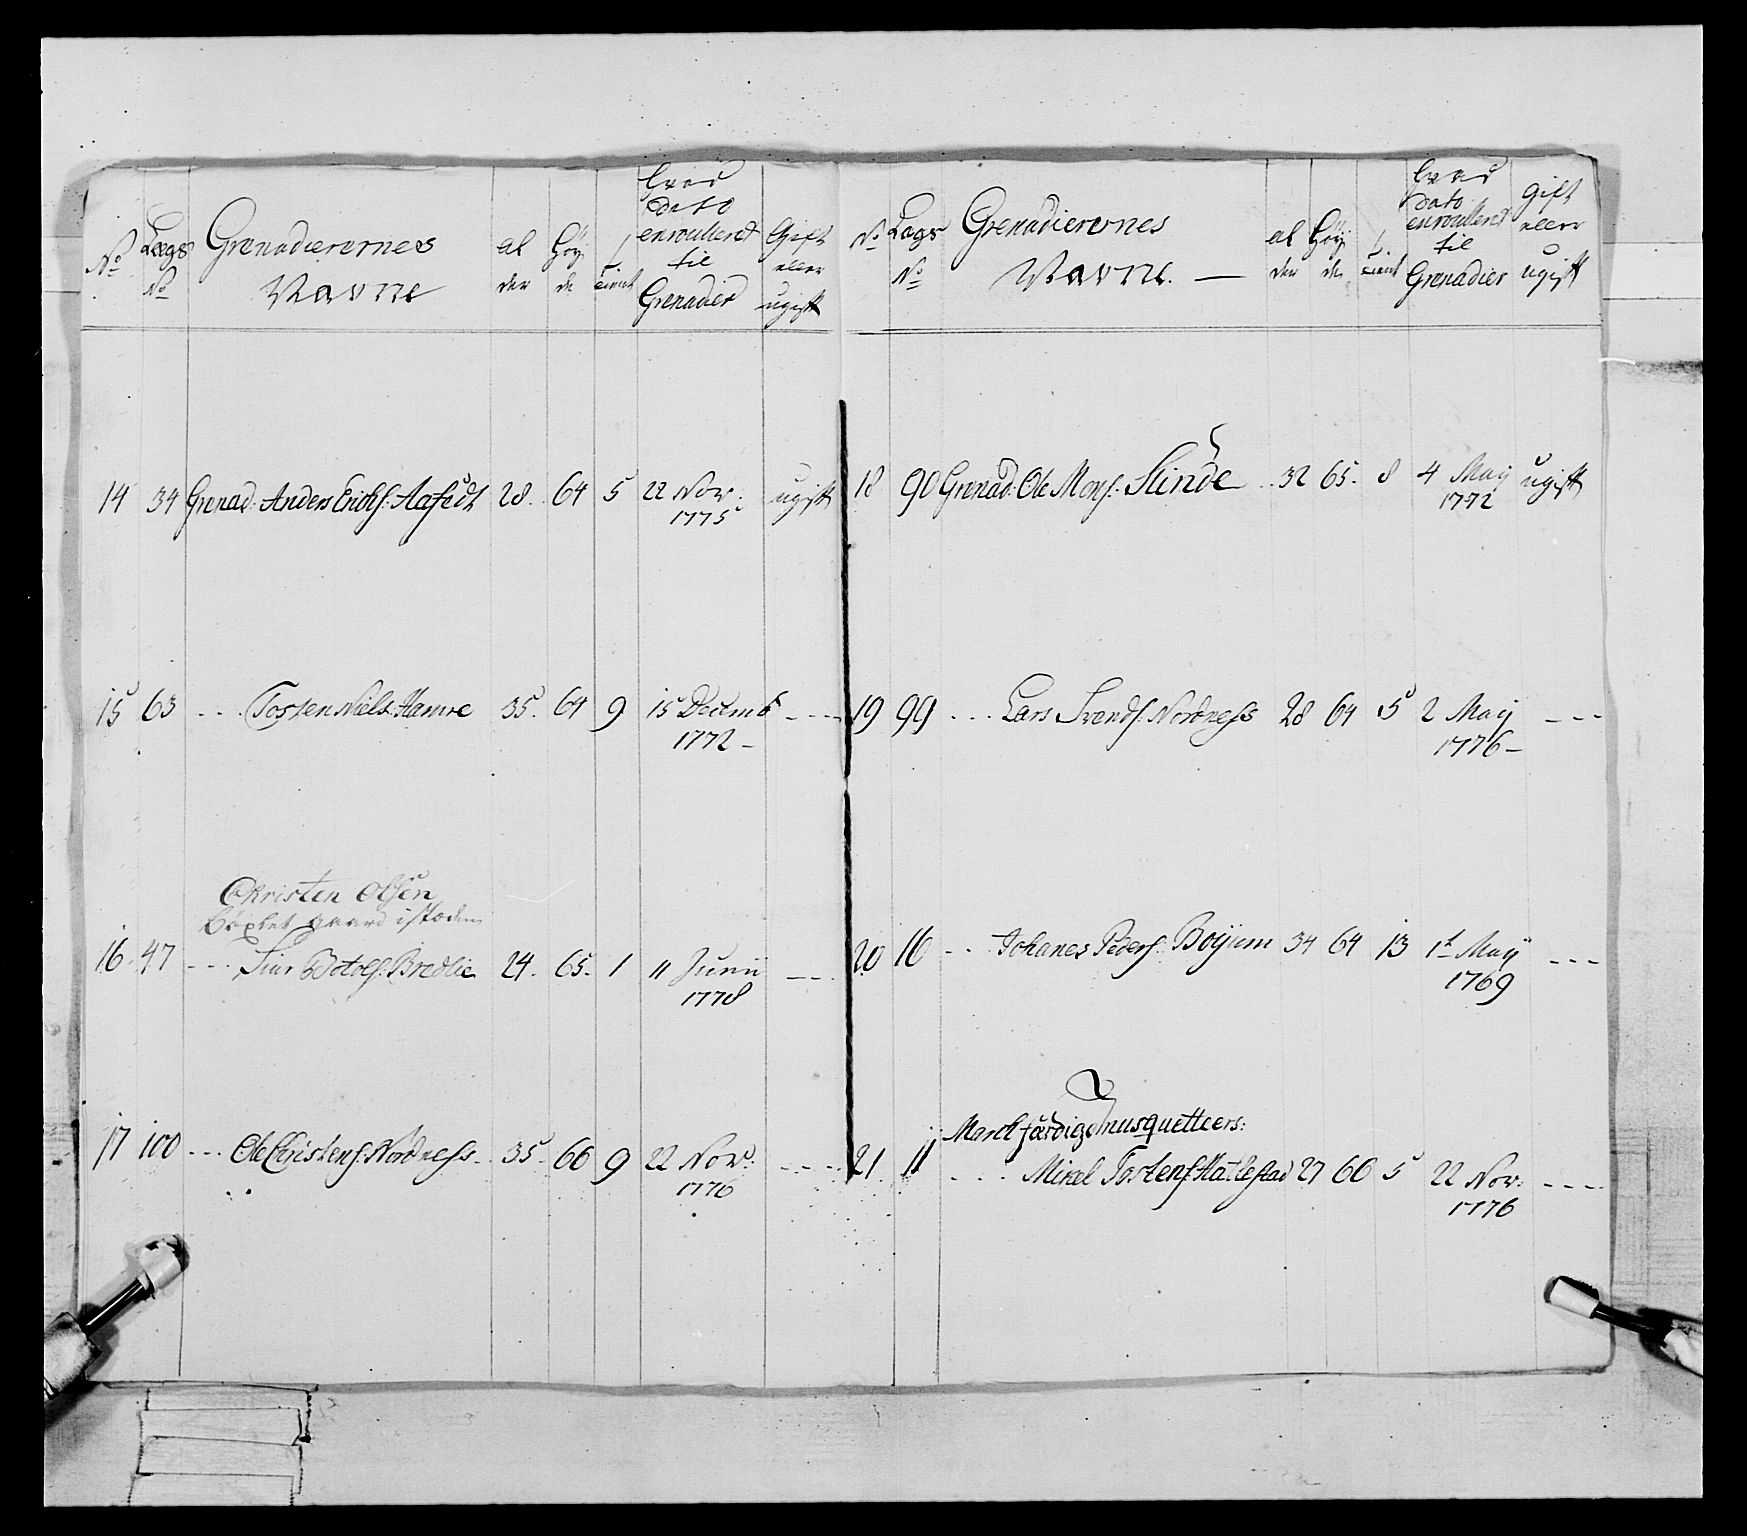 No Lægs No Grenadierernes Navne al der Høy de tient hvad dato enroulleret til Grenadier Gift eller ugift
14 34 Grenad: Anders Erichs: Aafædt 28. 64 5 22 Nov: 1775 ugift
15 63 - - - Tosten Niels: Hamre 35. 64 9 15 Decemb 1772 - - - -
Christen Olsen
bøxlet gaard istæden
16. 47 - - - Siur Botolfs: Bredlie 24. 65. 1 11 Junii 1778 - - -
17 100 - - - Ole Christens: Nordness. 35. 66 9 22 Nov: 1776 - - - -
No Lægs No Grenadierernes Navne. al der Høy de tient hvad dato enroulleret til Grenadier gift eller ugift
18 90 Grenad: Ole Mons: Slinde 32 65. 8 4 Maij 1772 ugift
19 99 - - - Lars Svends: Nordness 28 64 5 2 Maij 1776 - - -
20 16 - - Johanes Peders: Boyum 34 64 13 1t Maij 1769 - - -
March færdige musquetteers:
21. 11 - - - Mikel Tostens: Hatlestad 27 66 5 22 Nov: 1776 - - - -